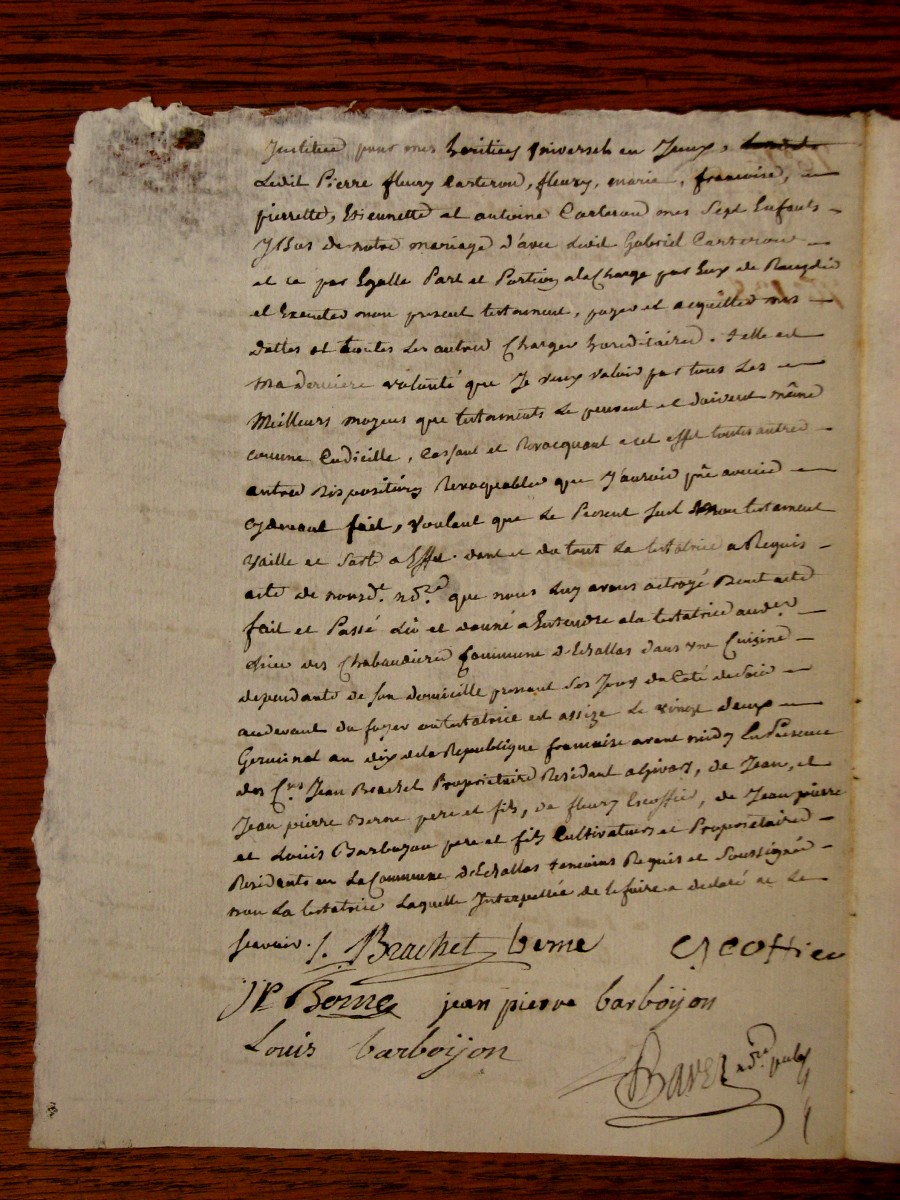 Jnstitue pour mes heritiers Vniversels en Jceux,
Ledit Pierre fleury Carteron, fleury, marie, francoise,
pierrette, Etiennette et antoine Carteron mes Sept Enfants
Jssus de notre mariage d'avec Ledit Gabriel Carteron
et ce par Egalle Part et Portion a la Charge par Eux de
et Executer mon present testament, payer et acquitter mes
dettes et toutes Les autres Charges hereditaires. telle est
Ma derniere volonté que Je veux valoir par tous Les
Meilleurs moyens que testaments Le peuvent et doivent même
comme Codicille, Cassant et Revocquant a cet effet toutes autres
autres dispositions Revocquables que J'aurois pû avoir
Cydevant fait, voulant que Le Present Seul mon testament
Vaille et Sorte a Effet. dont et du tout La testatrice a Requis
acte de nousdt. nore. que nous Luy avons octroyé Dont acte
fait et Passé Lû et donné a Entendre a la testatrice aud.
Lieu des Chabaudieres Commune d'Echallas dans vne Cuizine
dependante de son domicille prenant Ses Jours du Coté de Soir
audevant du foyer ou testatrice est assize Le vingt deux
Germinal an dix de la Republique francaise avant midy En Presence
des Cns Jean Brachet Proprietaire Residant a Givors, de Jean, et
Jean pierre Berne pere et fils, de fleury Escoffier, de Jean pierre
et Louis Barboyon pere et fils Cultivateurs et Proprietaires
Residents en La Commune d'Echallas temoins Requis et Soussignés
non La testatrice Laquelle Jnterpellée de le faire a declaré ne Le
Scavoir. J. Brachet berne escoffier
JP Berne jean pierre barboijon
Louis barboijon
nore. publ